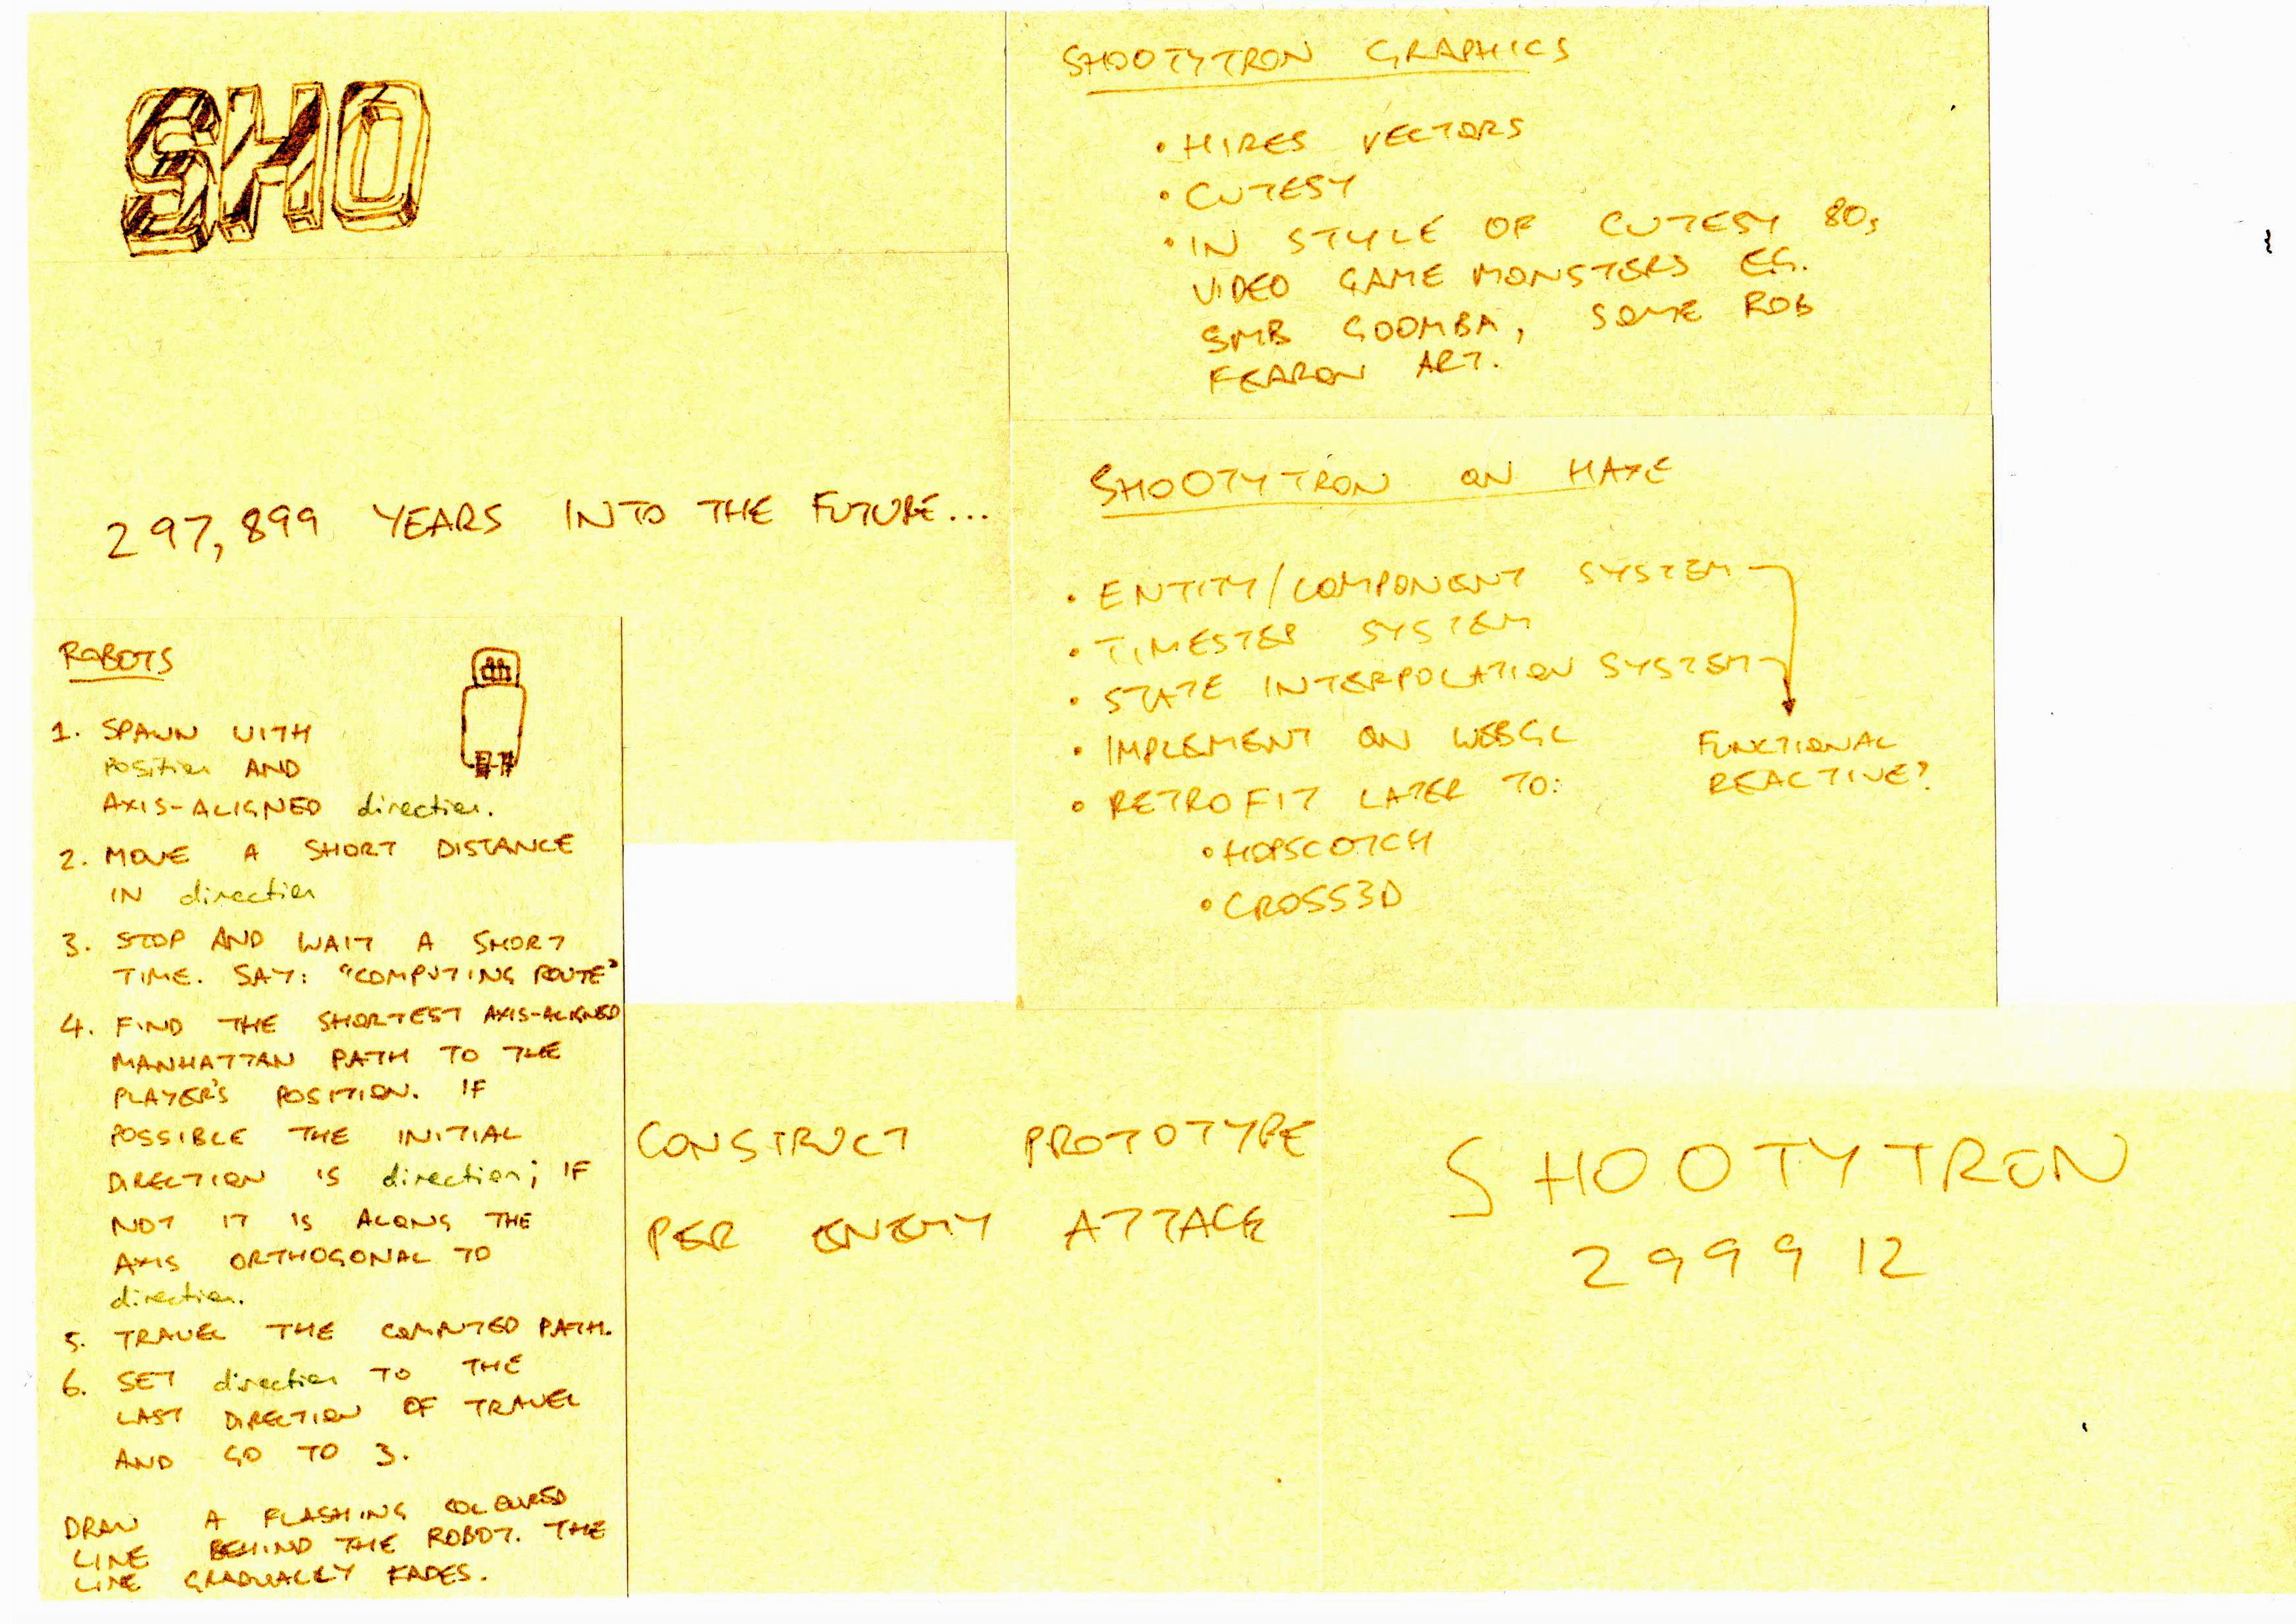 SHO
297,899 YEARS INTO THE FUTURE...
ROBOTS
1. SPAWN WITH
position AND
AXIS-ALIGNED direction.
2. MOVE A SHORT DISTANCE
IN direction
3. STOP AND WAIT A SHORT
TIME. SAY: "COMPUTING ROUTE"
4. FIND THE SHORTEST AXIS-ALIGNED
MANHATTAN PATH TO THE
PLAYER'S POSITION. IF
POSSIBLE THE INITIAL
DIRECTION IS direction; IF
NOT IT IS ALONG THE
AXIS ORTHOGONAL TO
direction.
5. TRAVEL THE COMPUTED PATH.
6. SET direction TO THE
LAST DIRECTION OF TRAVEL
AND GO TO 3.
DRAW A FLASHING COLOURED
LINE BEHIND THE ROBOT. THE
LINE GRADUALLY FADES.
SHOOTYTRON GRAPHICS
• HIRES VECTORS
• CUTESY
• IN STYLE OF CUTESY 80s
VIDEO GAME MONSTERS EG.
SMB GOOMBA, SOME ROB
FEARON ART.
SHOOTYTRON ON HAXE
• ENTITY/COMPONENT SYSTEM
• TIMESTEP SYSTEM
• STATE INTERPOLATION SYSTEM
• IMPLEMENT ON WEBGL
• RETROFIT LATER TO:
• HOPSCOTCH
• CROSS3D
FUNCTIONAL
REACTIVE?
CONSTRUCT PROTOTYPE
PER ENEMY ATTACK
SHOOTYTRON
299912